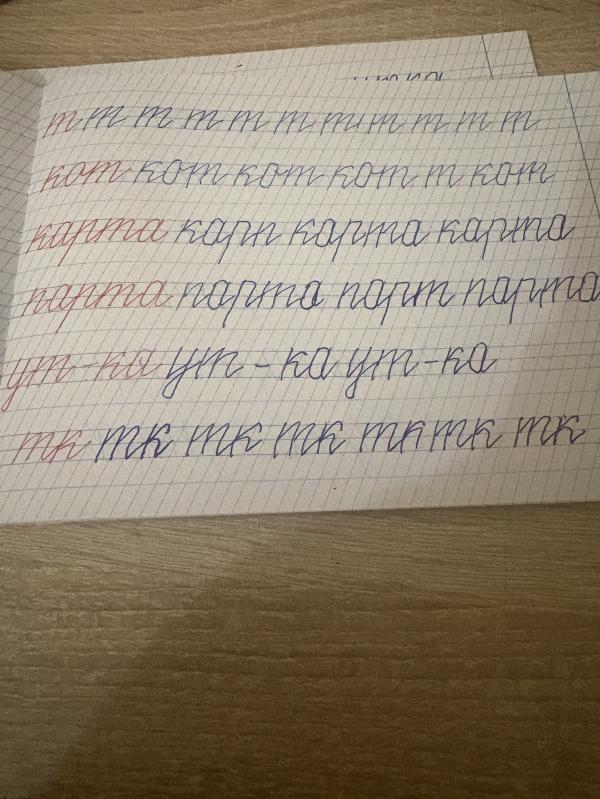 т т т т т т т т т т т
кот кот кот кот т кот
карта карп карта карта
парта парта парт парта
ут-ка ут - ка ут-ка
тк тк тк тк тк тк тк